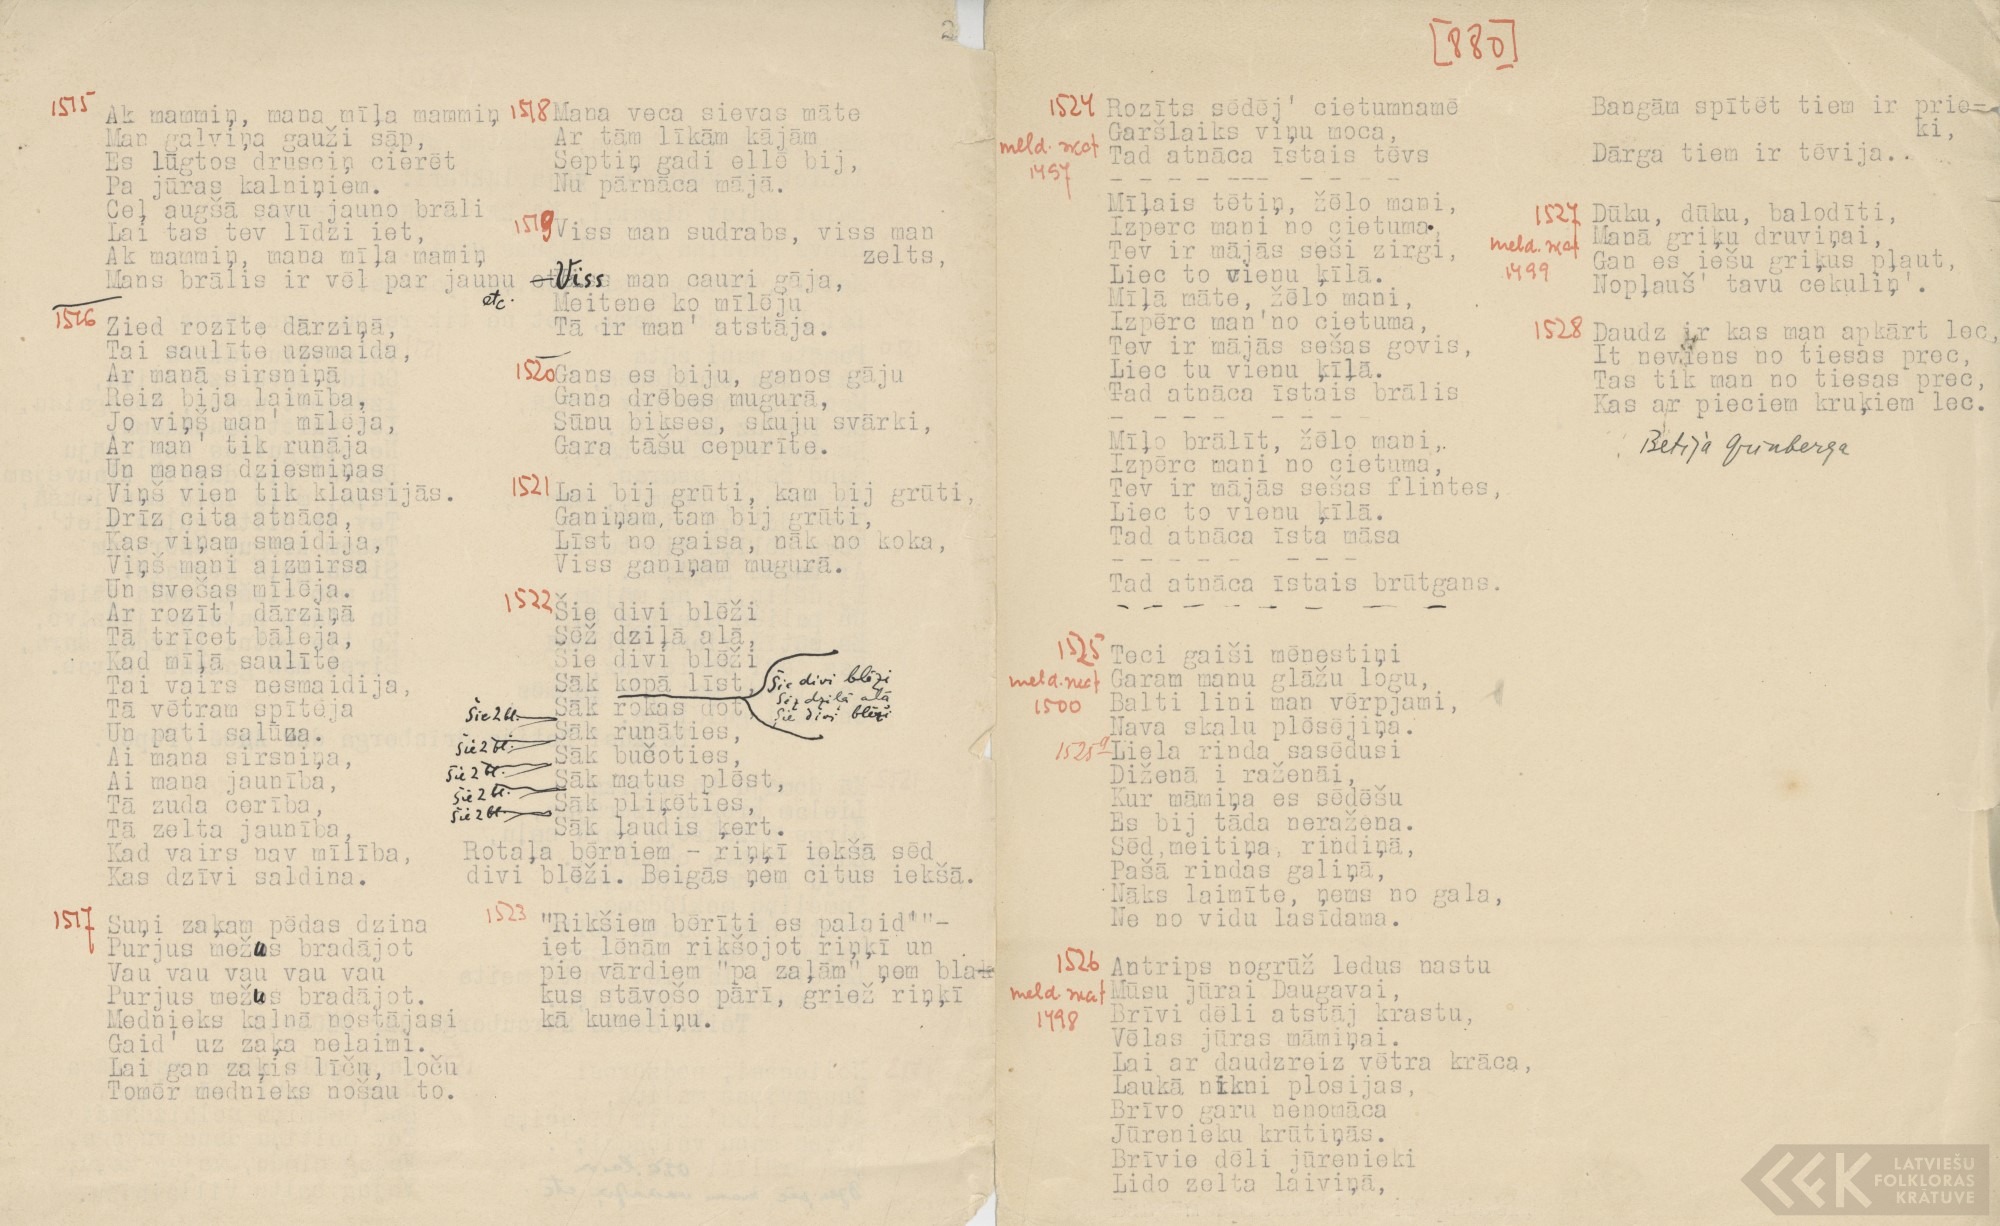 2
1515
Ak mammiņ, mana mīļa mammiņ
Man galviņa gauži sāp,
Es lūgtos drusciņ cierēt
Pa jūras kalniņiem.
Ceļ augšā savu jauno brāli
Lai tas tev līdzi iet,
Ak mammiņ, mana mīļa mamiņ
Mans brālis ir vēl par jaunu
etc.
1516
Zied rozīte dārziņā,
Tai saulīte uzsmaida,
Ar manā sirsniņā
Reiz bija laimība,
Jo viņš man' mīlēja,
Ar man' tik runāja
Un manas dziesmiņas
Viņš vien tik klausijās.
Drīz cita atnāca,
Kas viņam smaidija,
Viņš mani aizmirsa
Un svešas mīlēja.
Ar rozīt' dārziņā
Tā trīcet bāleja,
Kad mīļā saulīte
Tai vairs nesmaidija,
Tā vētram spītēja
Un pati salūza.
Ai mana sirsniņa,
Ai mana jaunība,
Tā zuda cerība,
Tā zelta jaunība,
Kad vairs nav mīlība,
Kas dzīvi saldina.
1517
Suņi zaķam pēdas dzina
Purjus mežus bradājot
Vau vau vau vau vau
Purjus mežus bradājot.
Mednieks kalnā nostājasi
Gaid' uz zaķa nelaimi.
Lai gan zaķis līču, loču
Tomēr mednieks nošau to.
1518
Mana veca sievas māte
Ar tām līkām kājām
Septiņ gadi ellē bij,
Nu pārnāca mājā.
1519
Viss man sudrabs, viss man
zelts,
Viss man cauri gāja,
Meitene ko mīlēju
Tā ir man' atstāja.
1520
Gans es biju, ganos gāju
Gana drēbes mugurā,
Sūnu bikses, skuju svārki,
Gara tāšu cepurīte.
1521
Lai bij grūti, kam bij grūti,
Ganiņam, tam bij grūti,
Līst no gaisa, nāk no koka,
Viss ganiņam mugurā.
1522
Šie divi blēži
Sēž dziļā alā,
Šie divi blēži
Sāk kopā līst,
Šie divi blēži
Sēž dziļā alā
Šie divi blēži
Šie 2 bl. Sāk rokas dot,
Šie 2 bl. Sāk runāties,
Šie 2 bl. Sāk bučoties,
Šie 2 bl. Sāk matus plēst,
Šie 2 bl. Sāk pliķēties,
Sāk ļaudis ķert.
Rotaļa bērniem - riņķī iekšā sēd
divi blēži. Beigās ņem citus iekšā.
1523
"Rikšiem bērīti es palaid'"-
iet lēnām rikšojot riņķī un
pie vārdiem "pa zaļām" ņem bla-
kus stāvošo pārī, griež riņķī
kā kumeliņu.
[880]
1524
meld. skat
1457
Rozīts sēdēj' cietumnamē
Garšlaiks viņu moca,
Tad atnāca īstais tēvs
- - - - - - - - - - -
Mīļais tētiņ, žēlo mani,
Izpērc mani no cietuma,
Tev ir mājās seši zirgi,
Liec to vienu ķīlā.
Mīļā māte, žēlo mani,
Izpērc man'no cietuma,
Tev ir mājās sešas govis,
Liec tu vienu ķīļā.
Tad atnāca īstais brālis
- - - - - - - -
Mīļo brālīt, žēlo mani,
Izpērc mani no cietuma,
Tev ir mājās sešas flintes,
Liec to vienu ķīlā.
Tad atnāca īsta māsa
- - - - - - - -
Tad atnāca īstais brūtgans.
- - - - - - - - -
1525
meld. skat
1500
Teci gaiši mēnestiņi
Garam manu glāžu logu,
Balti lini man vērpjami,
Nava skalu plēsējiņa.
1525a
Liela rinda sasēdusi
Diženā i raženāi,
Kur māmiņa es sēdēšu
Es bij tāda neražena.
Sēd,meitiņa, rindiņā,
Pašā rindas galiņā,
Nāks laimīte, ņems no gala,
Ne no vidu lasīdama.
1526
meld. skat
1498
Antrips nogrūž ledus nastu
Mūsu jūrai Daugavai,
Brīvi dēli atstāj krastu,
Vēlas jūras māmiņai.
Lai ar daudzreiz vētra krāca,
Laukā nikni plosijas,
Brīvo garu nenomāca
Jūrenieku krūtiņās.
Brīvie dēli jūrenieki
Lido zelta laiviņā,
Bangām spītēt tiem ir prie-
ki,
Dārga tiem ir tēvija..
1527
meld. skat
1499
Dūku, dūku, balodīti,
Manā griķu druviņai,
Gan es iešu griķus pļaut,
Nopļauš' tavu cekuliņ'.
1528
Daudz ir kas man apkārt lec,
It neviens no tiesas prec,
Tas tik man no tiesas prec,
Kas ar pieciem kruķiem lec.
Betija Grinberga
LATVIEŠU
FOLKLORAS
KRĀTUVE